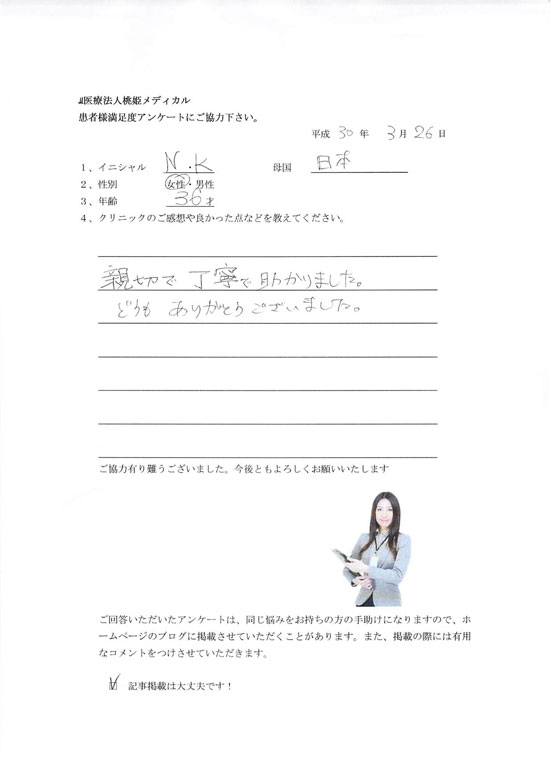 医療法人桃姫メディカル
患者様満足度アンケートにご協力下さい。
平成 30 年 3 月 26 日
1、イニシャル N.K 母国 日本
2、性別 女性・男性
3、年齢 36 才
4、クリニックのご感想や良かった点などを教えてください。
親切で丁寧で助かりました。
どうもありがとうございました。
ご協力有り難うございました。今後ともよろしくお願いいたします
ご回答いただいたアンケートは、同じ悩みをお持ちの方の手助けになりますので、ホ
ームページのブログに掲載させていただくことがあります。また、掲載の際には有用
なコメントをつけさせていただきます。
記事掲載は大丈夫です！